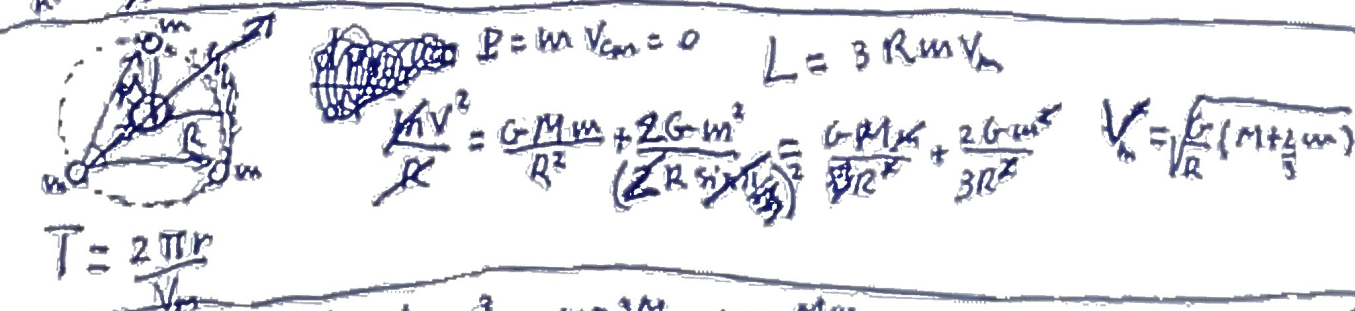 m
P = m Vcm = 0 L = 3 R m Vm
R
m m
mV²/R = GMm/R² + 2Gm²/(2R sin)² = GMm/R² + 2Gm²/3R² Vm = √(G/R (M + 2/3 m))
T = 2πr/Vm